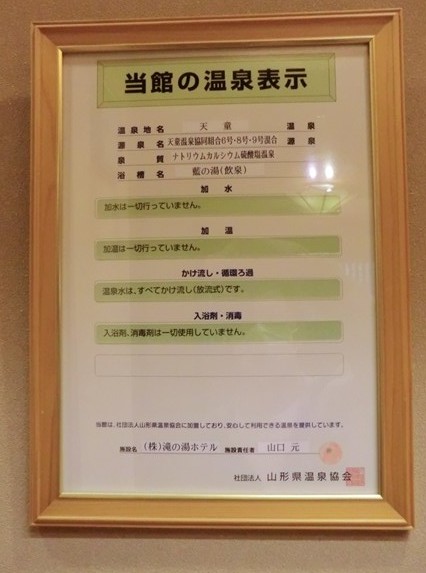 当館の温泉表示
温泉地名 天童 温泉
源泉名 天童温泉協同組合6号・8号・9号混合 源泉
泉質 ナトリウムカルシウム硫酸塩温泉
浴槽名 藍の湯(飲泉)
加水
加水は一切行っていません。
加温
加温は一切行っていません。
かけ流し・循環ろ過
温泉水は、すべてかけ流し(放流式)です。
入浴剤・消毒
入浴剤、消毒剤は一切使用していません。
当館は、社団法人山形県温泉協会に加盟しており、安心して利用できる温泉を提供しています。
施設名 (株)滝の湯ホテル 施設責任者 山口 元
社団法人 山形県温泉協会